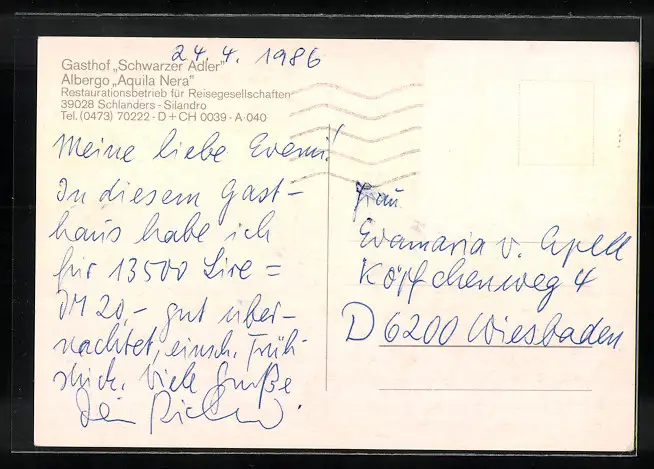 24.4. 1986
Gasthof „Schwarzer Adler"
Albergo „Aquila Nera"
Restaurationsbetrieb für Reisegesellschaften
39028 Schlanders - Silandro
Tel. (0473) 70222 - D + CH 0039 - A 040
Meine liebe Evemi!
In diesem Gast-
haus habe ich
für 13500 Lire =
DM 20,- gut über-
nachtet, einsch. Früh-
stück. Viele Grüße
Dein Richard.
Frau
Evamaria v. Apell
Köpfchenweg 4
D 6200 Wiesbaden